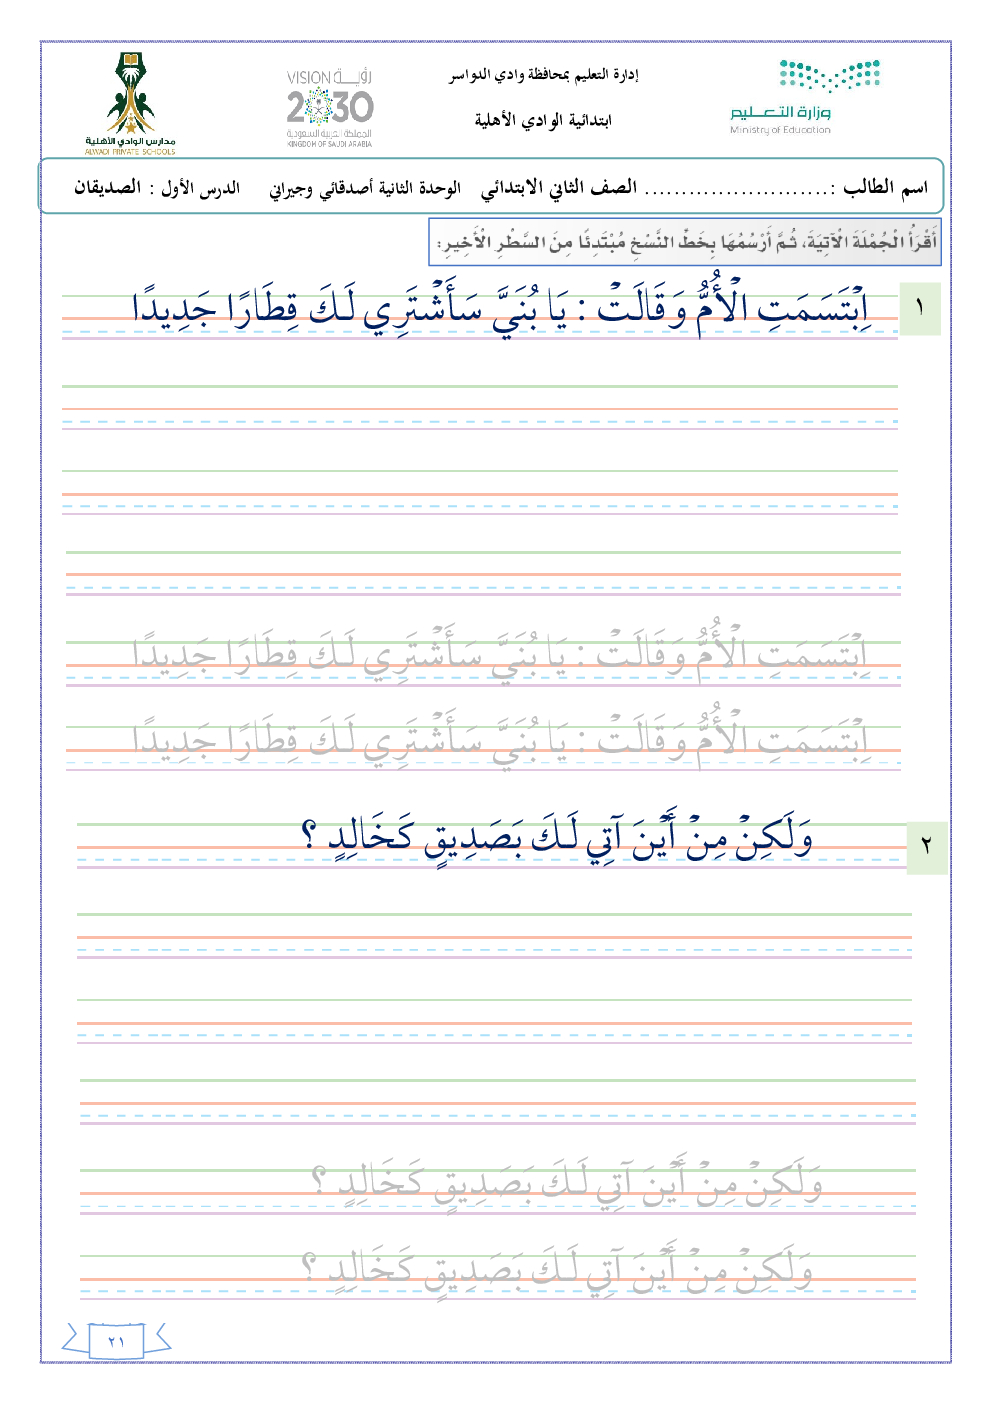 إدارة التعليم بمحافظة وادي الدواسر
ابتدائية الوادي الأهلية
وزارة التعـــليم
Ministry of Education
VISION رؤيــــة
2030
المملكة العربية السعودية
KINGDOM OF SAUDI ARABIA
مدارس الوادي الأهلية
ALWADI PRIVATE SCHOOLS
اسم الطالب :......................... الصف الثاني الابتدائي الوحدة الثانية أصدقائي وجيراني الدرس الأول : الصديقان
أَقْرَأُ الْجُمْلَةَ الْآتِيَةَ، ثُمَّ أَرْسُمُهَا بِخَطِّ النَّسْخِ مُبْتَدِئًا مِنَ السَّطْرِ الْأَخِيرِ:
١
اِبْتَسَمَتِ الْأُمُّ وَقَالَتْ : يَا بُنَيَّ سَأَشْتَرِي لَكَ قِطَارًا جَدِيدًا
اِبْتَسَمَتِ الْأُمُّ وَقَالَتْ : يَا بُنَيَّ سَأَشْتَرِي لَكَ قِطَارًا جَدِيدًا
اِبْتَسَمَتِ الْأُمُّ وَقَالَتْ : يَا بُنَيَّ سَأَشْتَرِي لَكَ قِطَارًا جَدِيدًا
٢
وَلَكِنْ مِنْ أَيْنَ آتِي لَكَ بَصَدِيقٍ كَخَالِدٍ ؟
وَلَكِنْ مِنْ أَيْنَ آتِي لَكَ بَصَدِيقٍ كَخَالِدٍ ؟
وَلَكِنْ مِنْ أَيْنَ آتِي لَكَ بَصَدِيقٍ كَخَالِدٍ ؟
٢١